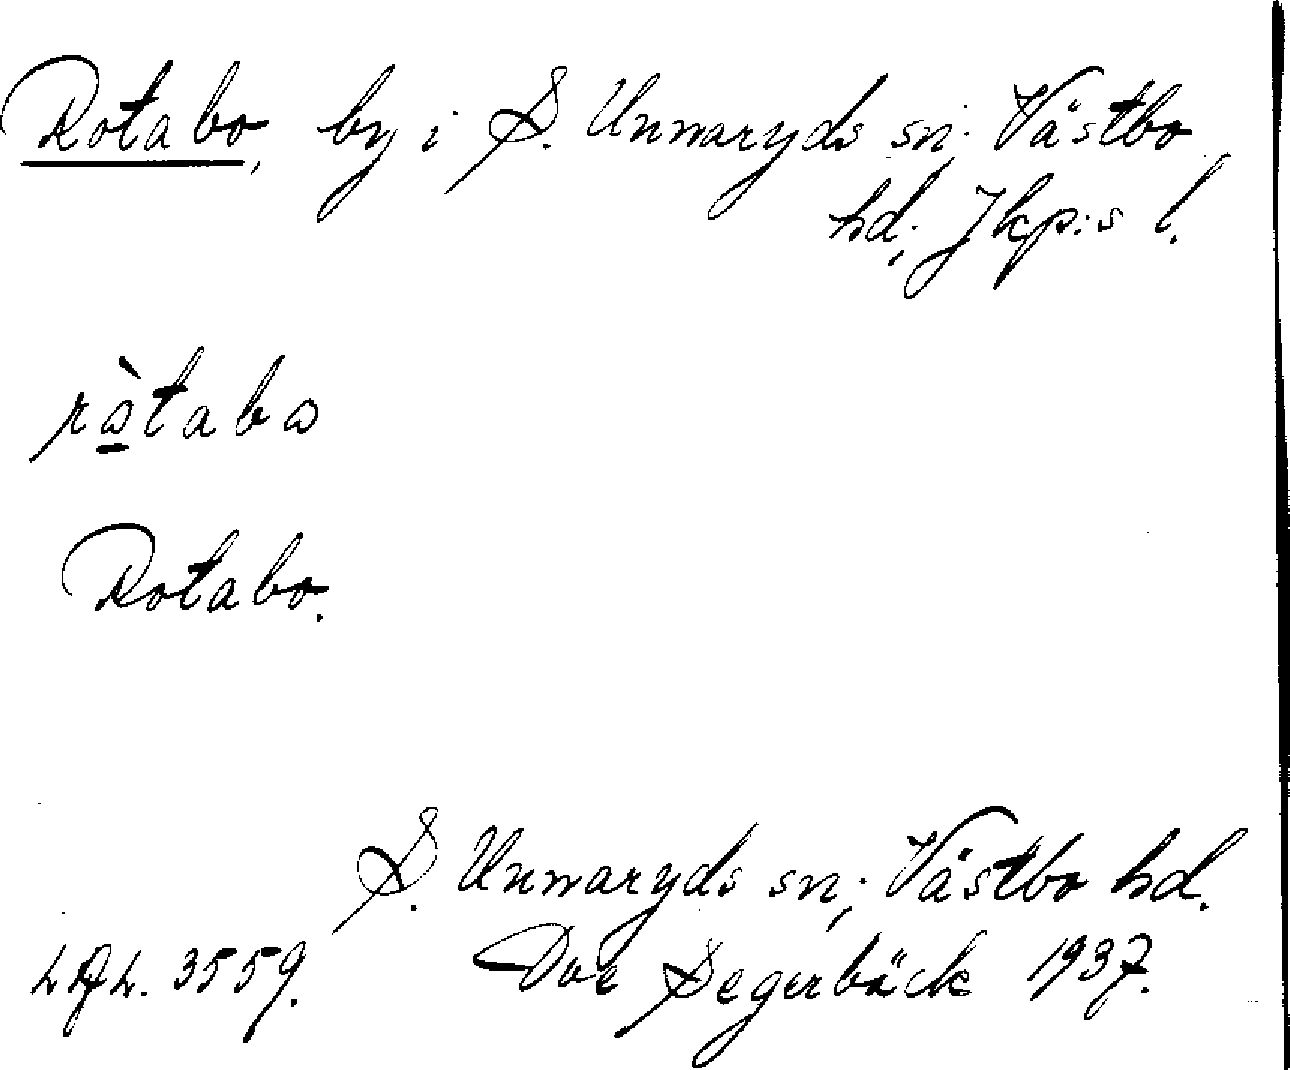 Rotabo, by i S. Unnaryds sn; Västbo
hd; Jkp:s l.
ròtabo
Rotabo.
S. Unnaryds sn; Västbo hd.
3559. Segerbäck 1937.